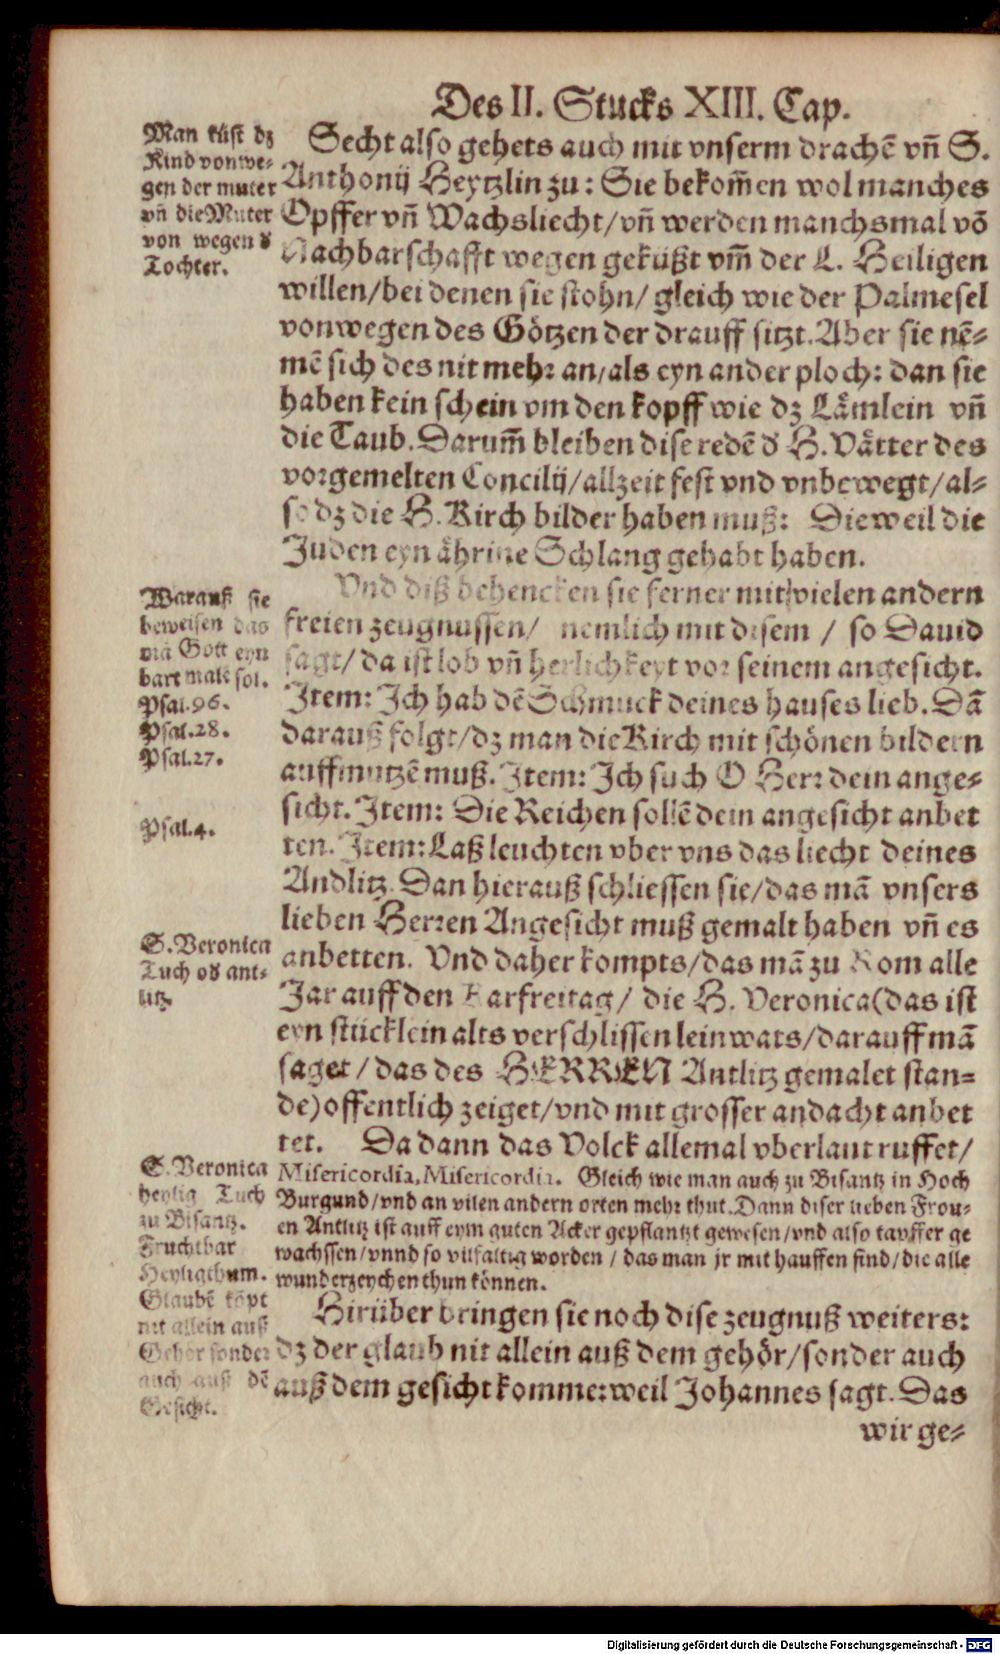 Des II. Stucks XIII. Cap.
Man küst dz
Kind von we-
gen der muter
vñ die Muter
von wegen d
Tochter.
Secht also gehets auch mit vnserm drachē vñ S.
Anthonij Seytzlin zu: Sie bekom̃en wol manches
Opffer vñ Wachsliecht/vñ werden manchsmal võ
Nachbarschafft wegen geküßt vm̃ der L. Heiligen
willen/bei denen sie stohn/ gleich wie der Palmesel
von wegen des Götzen der drauff sitzt. Aber sie nē-
mē sich des nit mehr an/als eyn ander ploch: dan sie
haben kein schein vm den kopff wie dz Lämlein vñ
die Taub. Darum̃ bleiben dise redē d H. Vätter des
vorgemelten Concilij/allzeit fest vnd vnbewegt/al-
so dz die H. Kirch bilder haben muß: Dieweil die
Juden eyn ährine Schlang gehabt haben.
Warauß sie
beweisen das
mā Gott eyn
bart male sol.
Psal.96.
Psal.28.
Psal.27.
Psal.4.
Vnd diß behencken sie ferner mit vielen andern
freien zeugnussen/ nemlich mit disem / so Dauid
sagt/ da ist lob vñ herlichkeyt vor seinem angesicht.
Item: Ich hab dē Schmuck deines hauses lieb. Dā
darauß folgt/dz man die Kirch mit schönen bildern
auffmutzē muß. Item: Ich such O Herr dein ange-
sicht. Item: Die Reichen sollē dem angesicht anbet
ten. Item: Laß leuchten vber vns das liecht deines
Andlitz. Dan hierauß schliessen sie/das mā vnsers
lieben Herren Angesicht muß gemalt haben vñ es
S. Veronica
Tuch od ant-
litz.
anbetten. Vnd daher kompts/das mā zu Rom alle
Jar auff den Karfreitag/ die H. Veronica(das ist
eyn stücklein alts verschlissen leinwats/darauff mā
saget / das des HERREN Antlitz gemalet stan-
de)offentlich zeiget/vnd mit grosser andacht anbet
tet. Da dann das Volck allemal vberlaut ruffet/
S. Veronica
heylig Tuch
zu Bisantz.
Fruchtbar
Heyligthum.
Misericordia, Misericordia. Gleich wie man auch zu Bisantz in Hoch
Burgund/vnd an vilen andern orten mehr thut. Dann diser lieben Frou-
en Antlitz ist auff eym guten Acker gepflantzt gewesen/vnd also tapffer ge
wachssen/vnnd so vilfältig worden / das man jr mit hauffen find/die alle
wunderzeychen thun können.
Glaubē kōpt
nit allein auß
Gehör sonder
auch auß dē
Gesicht.
Hirüber bringen sie noch dise zeugnuß weiters:
dz der glaub nit allein auß dem gehör/sonder auch
auß dem gesicht komme: weil Johannes sagt. Das
wir ge-
Digitalisierung gefördert durch die Deutsche Forschungsgemeinschaft - DFG